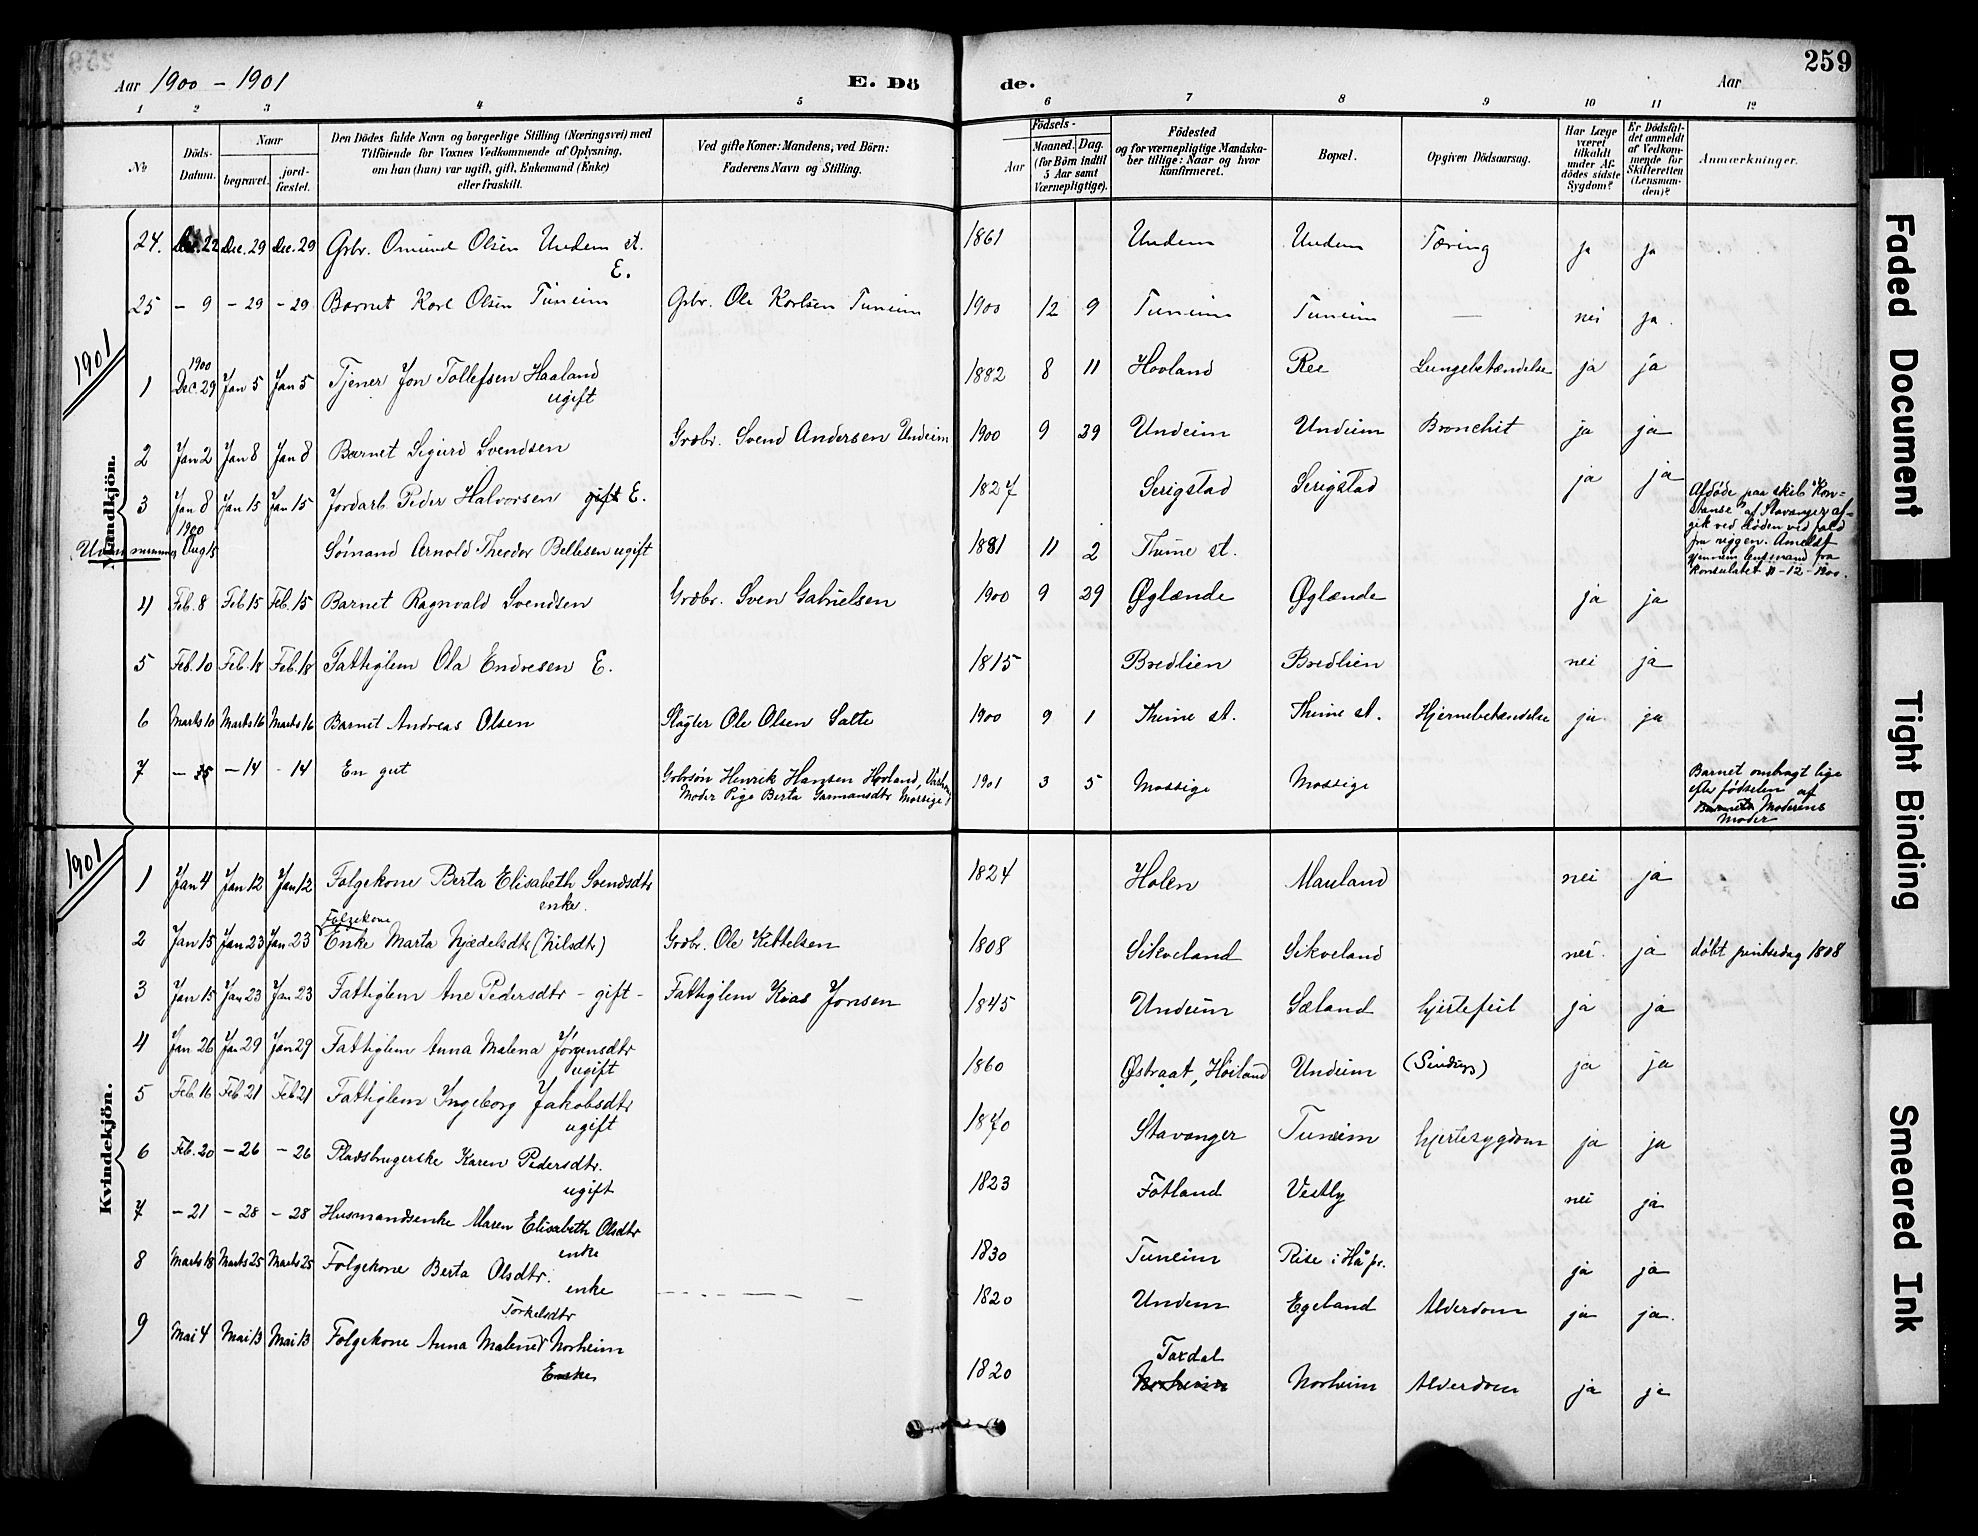 259
Aar 1900 - 1901
E. Dö
de.
Aar
1 2 3 4 5 6 7 8 9 10 11 12
No
Döds-Datum.
Naar
begravet.
jord-fæstet.
Den Dödes fulde Navn og borgerlige Stilling (Næringsvei) med
Tilföiende for Voxnes Vedkommende af Oplysning,
om han (hun) var ugift, gift, Enkemand (Enke)
eller fraskilt.
Ved gifte Koner: Mandens, ved Börn:
Faderens Navn og Stilling.
Födsels-
Aar
Maaned. Dag.
(for Börn indtil
5 Aar samt
Værnepligtige).
Födested
og for værnepligtige Mandska-
ber tillige: Naar og hvor
konfirmeret.
Bopæl.
Opgiven Dödsaarsag.
Har Læge
været
tilkaldt
under Af-
dödes sidste
Sygdom?
Er Dödsfal-
det anmeldt
af Vedkom-
mende for
Skifteretten
(Lensman-
den)?
Anmærkninger.
Mandkjön.
24. Dec. 22 Dec. 29 Dec. 29 Grbr. Omund Olsen Undem st. E. 1861 Undem Undem Tæring ja ja
25 - 9 - 29 - 29 Barnet Karl Olsen Tuneim Grbr. Ole Karlsen Tuneim 1900 12 9 Tuneim Tuneim — nei ja.
1901
1 1900 Dec. 29 Jan 5 Jan 5 Tjener Jon Tollefsen Haaland ugift 1882 8 11 Hovland Ree Lungebetændelse ja ja
2 Jan 2 Jan 8 Jan 8 Barnet Sigurd Svendsen Grdbr. Svend Andersen Undeim 1900 9 29 Undeim Undeim Bronchit ja ja
3 Jan 8 Jan 15 Jan 15 Jordarb. Peder Halvorsen gift E. 1827 Serigstad Serigstad ja ja
Uden nummer 1900 Aug 15 Sömand Arnold Theodor Bellesen ugift 1881 11 2 Thime st.
Afdöde paa skib "Kon-
Danse" af Stavanger af-
gik ved döden ved fald
fra riggen. Anmeldt
gjennem lensmand fra
konsulatet 11-12-1900.
4 Feb. 8 Feb 15 Feb. 15 Barnet Ragnvald Svendsen Grdbr. Sven Gabrielsen 1900 9 29 Øglænde Øglænde ja ja
5 Feb. 10 Feb. 18 Feb. 18 Fattiglem Ola Endresen E. 1815 Bredlien Bredlien nei ja
6 Marts 10 Marts 16 Marts 16 Barnet Andreas Olsen Slagter Ole Olsen Salte 1900 9 1 Thime st. Thime st. Hjernebetændelse ja ja
7 - 5 - 14 - 14 En gut Grbrsön Henrik Hansen Hovland,
Moder Pige Berta Garmansdtr Mossige 1901 3 5 Mossige Mossige
Barnet ombragt lige
efter födselen af
Barnets Moderens
Moder
Kvindekjön.
1901
1 Jan 4 Jan 12 Jan 12 Folgekone Berta Elisabeth Svendsdtr enke. 1824 Holen Mauland nei ja
2 Jan 15 Jan 23 Jan 23 Folgekone Enke Marta Njædelsdtr (Nilsdtr) Grdbr. Ole Kittelsen 1808 Sikveland Sikveland nei. ja döbt pintsedag 1808
3 Jan 15 Jan 23 Jan 23 Fattiglem Ane Pedersdtr - gift - Fattiglem Kias Jonsen 1845 Undeim Sæland hjertefeil ja ja
4 Jan 26 Jan 29 Jan 29 Fattiglem Anna Malena Jörgensdtr ugift 1860 Østraat, Höiland Undeim (Sindssyg) ja ja
5 Feb. 16 Feb 21 Feb 21 Fattiglem Ingeborg Jakobsdtr ugift 1870 Stavanger Tuneim hjertesygdom ja ja
6 Feb. 20 - 26 - 26 Pladsbrugerske Karen Pedersdtr. ugift 1823 Fotland Vestly nei ja
7 - 21 - 28 - 28 Husmandsenke Maren Elisabeth Olsdtr enke 1830 Tuneim Rise i Hå pr. ja ja
8 Marts 18 Marts 25 Marts 25 Folgekone Berta Olsdtr. enke 1820 Undem Egeland Alderdom ja ja.
9 Mai 4 Mai 13 Mai 13 Folgekone Anna Malene Torkelsdtr Norheim Enke 1820 Taxdal Norheim Norheim Alderdom ja ja
Faded Document
Tight Binding
Smeared Ink